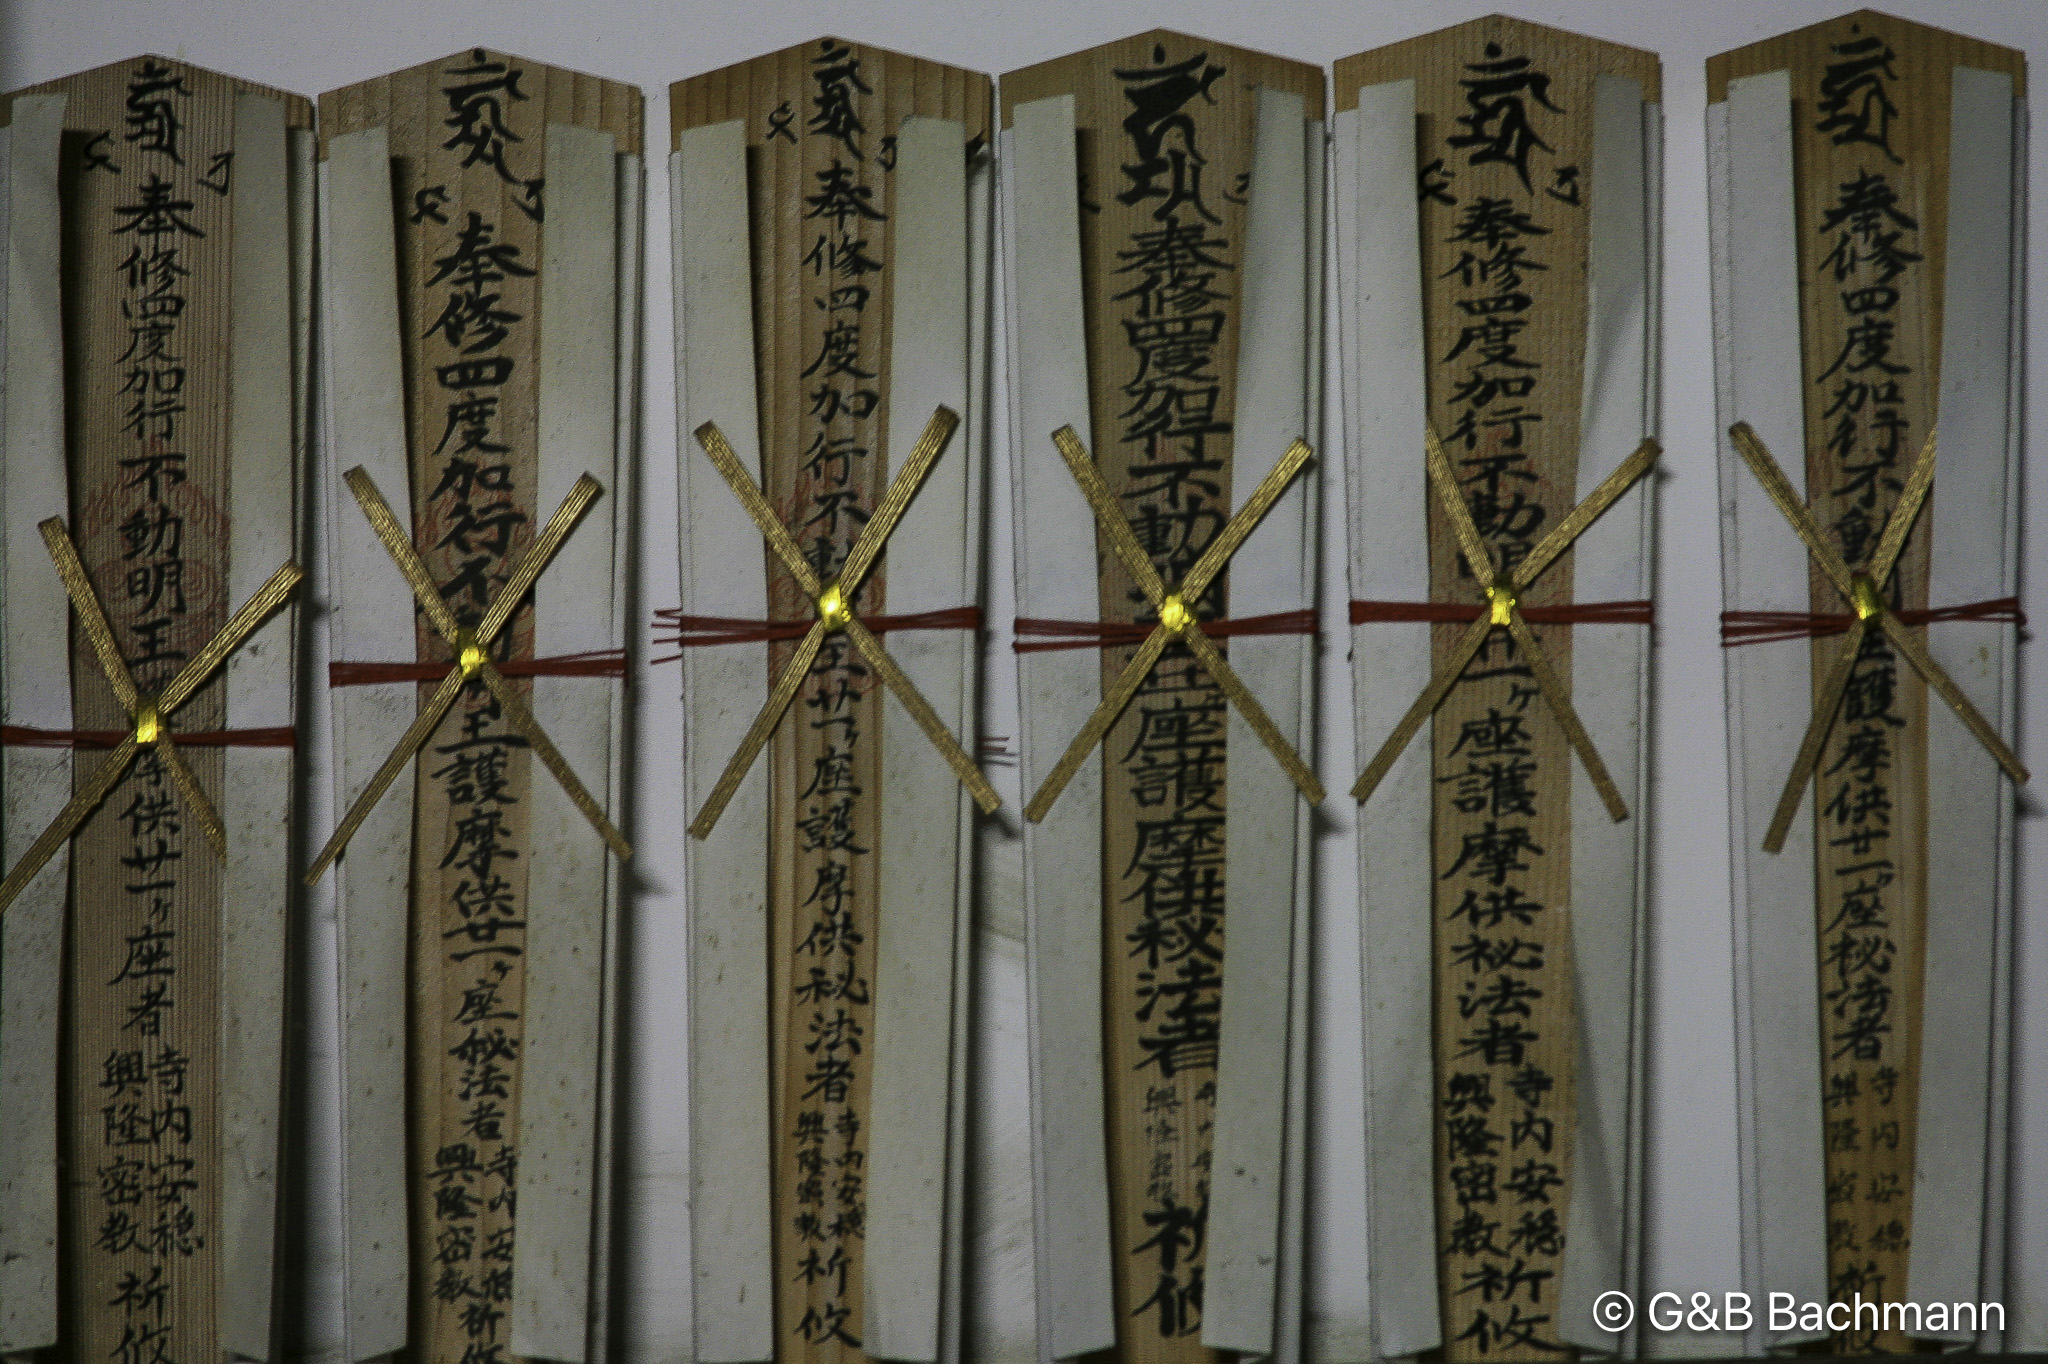 奉修四度加行不動明王摩供廿一ヶ座者
寺内安穏
興隆密教
祈攸
奉修四度加行不王護摩供廿一ヶ座秘法者
寺内安穏
興隆密教
祈攸
奉修四度加行不動王廿一ヶ座護摩供秘法者
寺内安穏
興隆密教
祈攸
奉修四度加行不動ヶ座護摩供秘法者
興隆密教
祈攸
奉修四度加行不動明廿一ヶ座護摩供秘法者
寺内安穏
興隆密教
祈攸
奉修四度加行不動王護摩供廿一ヶ座秘法者
寺内安穏
興隆密教
祈攸
© G&B Bachmann